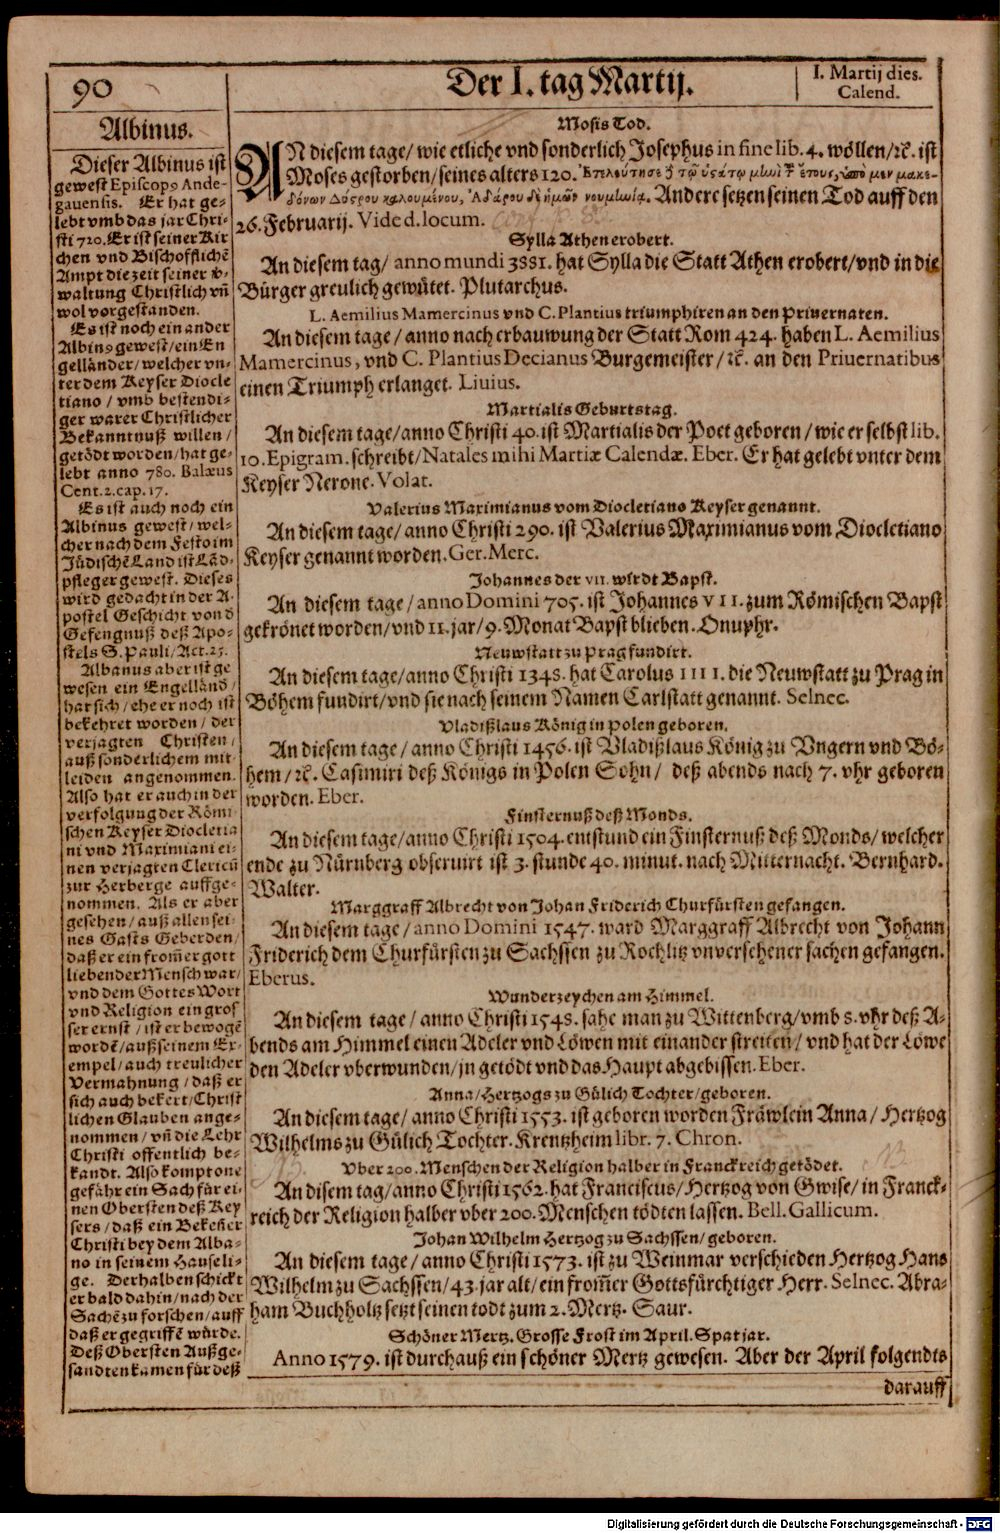 90
Der I. tag Martij.
I. Martij dies.
Calend.
Albinus.
Dieser Albinus ist
gewest Episcopꝰ Ande-
gavensis. Er hat ge-
lebt vmb das jar Chri-
sti 720. Er ist seiner Kir
chen vnd Bischofflichẽ
Ampt die zeit seiner v̈-
waltung Christlich vñ
wol vorgestanden.
Es ist noch ein ander
Albinꝰ gewest/ein En
gelländer/welcher vn-
ter dem Keyser Diocle
tiano / vmb bestendi-
ger warer Christlicher
Bekanntnuß willen /
getödt worden/hat ge-
lebt anno 780. Balæus
Cent. 2. cap. 17.
Es ist auch noch ein
Albinus gewest/wel-
cher nach dem Festo im
Jüdischẽ Land ist Lãd-
pfleger gewest. Dieses
wird gedacht in der A-
postel Geschicht von d
Gefengnuß deß Apo-
stels S. Pauli/Act. 25.
Albanus aber ist ge
wesen ein Engelländ/
har sich/ehe er noch ist
bekehret worden/ der
verjagten Christen/
auß sonderlichem mit
leiden angenommen.
Also hat er auch in der
verfolgung der Römi
schen Keyser Diocletia
ni vnd Maximiani ei-
nen verjagten Clericũ
zur Herberge auffge-
nommen. Als er aber
gesehen/auß allen sei-
nes Gasts Geberden/
daß er ein from̃er gott
liebender Mensch war/
vnd dem Gottes Wort
vnd Religion ein gros
ser ernst / ist er bewogẽ
wordẽ/auß seinem Ex-
empel/auch treulicher
Vermahnung / daß er
sich auch bekert/Christ
lichen Glauben ange-
nommen/vñ die Lehr
Christi offentlich be-
kandt. Also kompt one
gefähr ein Sach für ei-
nen Obersten deß Key
sers/daß ein Bekeñer
Christi bey dem Alba-
no in seinem Hauseli-
ge. Derhalben schickt
er bald dahin/nach der
Sachẽ zu forschen/auff
daß er gegriffẽ würde.
Deß Obersten Außge-
sandten kamen für deß
Mosis Tod.
AN diesem tage/ wie etliche vnd sonderlich Josephus in fine lib. 4. wöllen/ꝛc. ist
Moses gestorben/seines alters 120. Andere setzen seinen Tod auff den
26. Februarij. Vide d. locum.
Sylla Athen erobert.
An diesem tag/ anno mundi 3881. hat Sylla die Statt Athen erobert/vnd in die
Bürger greulich gewütet. Plutarchus.
L. Aemilius Mamercinus vnd C. Plantius triumphiren an den Priuernaten.
An diesem tage / anno nach erbauwung der Statt Rom 424. haben L. Aemilius
Mamercinus, vnd C. Plantius Decianus Burgemeister / ꝛc. an den Priuernatibus
einen Triumph erlanget. Liuius.
Martialis Geburtstag.
An diesem tage/anno Christi 40. ist Martialis der Poet geboren / wie er selbst lib.
10. Epigram. schreibt/Natales mihi Martiæ Calendæ. Eber. Er hat gelebt vnter dem
Keyser Nerone. Volat.
Valerius Maximianus vom Diocletiano Keyser genannt.
An diesem tage/ anno Christi 290. ist Valerius Maximianus vom Diocletiano
Keyser genannt worden. Ger. Merc.
Johannes der VII. wirdt Bapst.
An diesem tage / anno Domini 705. ist Johannes VII. zum Römischen Bapst
gekrönet worden/vnd 11. jar/9. Monat Bapst blieben. Onuphr.
Neuwstatt zu Prag fundirt.
An diesem tage/anno Christi 1348. hat Carolus IIII. die Neuwstatt zu Prag in
Böhem fundirt/vnd sie nach seinem Namen Carlstatt genannt. Selnec.
Vladißlaus König in Polen geboren.
An diesem tage / anno Christi 1456. ist Vladißlaus König zu Vngern vnd Bö-
hem / ꝛc. Casimiri deß Königs in Polen Sohn / deß abends nach 7. vhr geboren
worden. Eber.
Finsternuß deß Monds.
An diesem tage/anno Christi 1504. entstund ein Finsternuß deß Monds/ welcher
ende zu Nürnberg obseruirt ist 3. stunde 40. minut. nach Mitternacht. Bernhard.
Walter.
Marggraff Albrecht von Johan Friderich Churfürsten gefangen.
An diesem tage / anno Domini 1547. ward Marggraff Albrecht von Johann
Friderich dem Churfürsten zu Sachssen zu Rochlitz vnversehener sachen gefangen.
Eberus.
Wunderzeychen am Himmel.
An diesem tage / anno Christi 1548. sahe man zu Wittenberg/vmb 8. vhr deß A-
bends am Himmel einen Adeler vnd Löwen mit einander streiten / vnd hat der Löwe
den Adeler vberwunden/jn getödt vnd das Haupt abgebissen. Eber.
Anna/Hertzogs zu Gülich Tochter/geboren.
An diesem tage/ anno Christi 1553. ist geboren worden Fräwlein Anna / Hertzog
Wilhelms zu Gülich Tochter. Krentzheim libr. 7. Chron.
Vber 200. Menschen der Religion halber in Franckreich getödet.
An disem tag/anno Christi 1562. hat Franciscus/Hertzog von Gwise/ in Franck-
reich der Religion halber vber 200. Menschen tödten lassen. Bell. Gallicum.
Johan Wilhelm Hertzog zu Sachssen/geboren.
An diesem tage / anno Christi 1573. ist zu Weinmar verschieden Hertzog Hans
Wilhelm zu Sachssen/43. jar alt/ein from̃er Gottsfürchtiger Herr. Selnec. Abra-
ham Buchholtz setzt seinen todt zum 2. Mertz. Saur.
Schöner Mertz. Grosse Frost im April. Spat jar.
Anno 1579. ist durchauß ein schöner Mertz gewesen. Aber der April folgendts
darauff
Digitalisierung gefördert durch die Deutsche Forschungsgemeinschaft - DFG